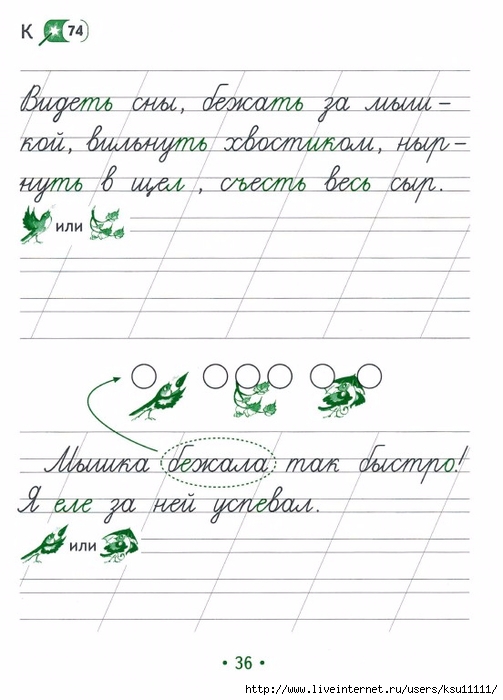 К 74
Видеть сны, бежать за мыш-
кой, вильнуть хвостиком, ныр-
нуть в щел , съесть весь сыр.
или
Мышка бежала так быстро!
Я еле за ней успевал.
или
• 36 •
http://www.liveinternet.ru/users/ksu11111/